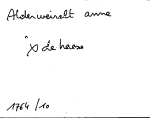 Alderweirelt anne
x de haese
1764/10